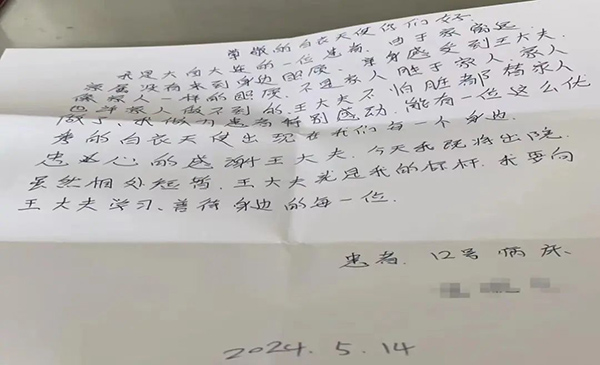 尊敬的白衣天使你们好.
我是大向大连的一位患者. 由于家离远
亲属没有来到身边照顾. 亲身感受到王大夫.
像亲人一样的照顾. 不是亲人胜于亲人 家人
做不到的. 王大夫不怕脏都替家人
做了. 我做为患者特别感动. 能有一位这么优
秀的白衣天使出现在我们每一个身边.
衷心的感谢王大夫. 今天我既将出院.
虽然相处短暂. 王大夫就是我的标杆. 我要向
王大夫学习、善待身边的每一位.
患者. 12号病床、
2024. 5. 14